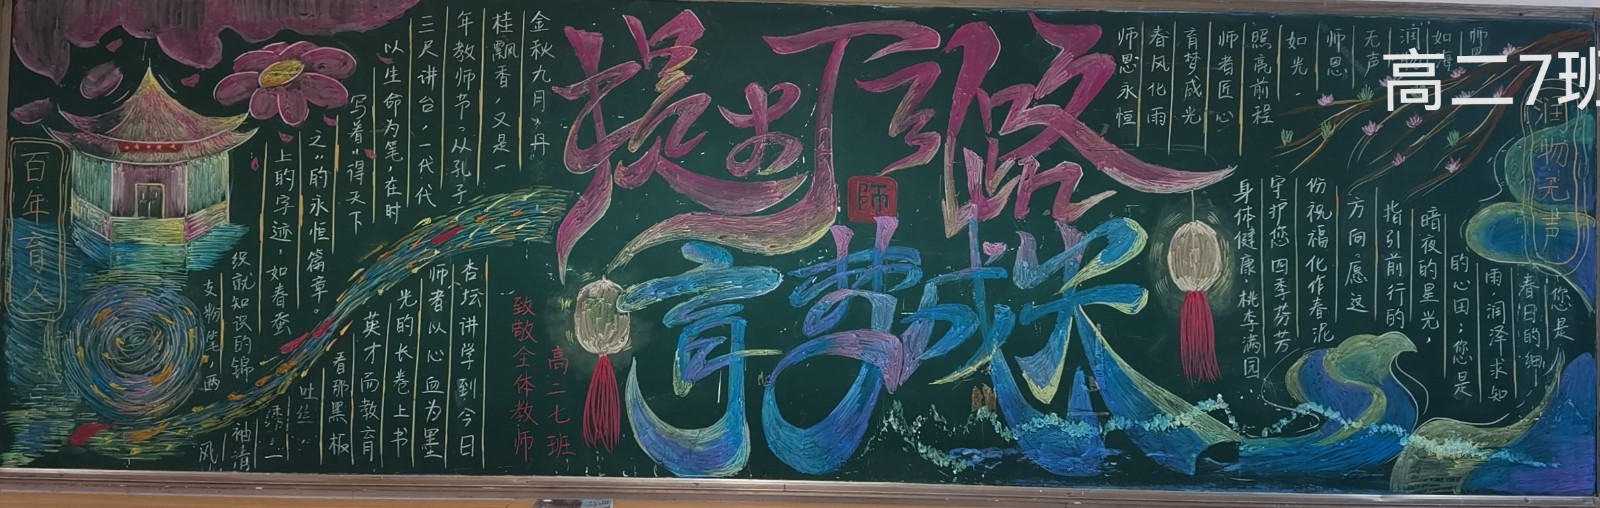 提步冈路
育梦成光
师
百年育人
润物无声
高二7班
金秋九月，丹
桂飘香，又是一
年教师节。从孔子
三尺讲台，一代代
以生命为笔，在时
写着“得天下
之”的永恒篇章。
上的字迹，如春蚕
织就知识的锦
支粉笔，两
杏坛讲学到今日
师者以心血为墨
光的长卷上书
英才而教育
看那黑板
吐丝
绣
袖清
风
致敬全体教师
高二七班
师恩如海
润
无声
师恩
如光，
照亮前程
师者匠心
育梦成光
春风化雨
师恩永恒
您是
春日的细
雨润泽求知
的心田；您是
暗夜的星光，
指引前行的
方向，愿这
份祝福化作春泥
守护您四季芬芳
身体健康，桃李满园